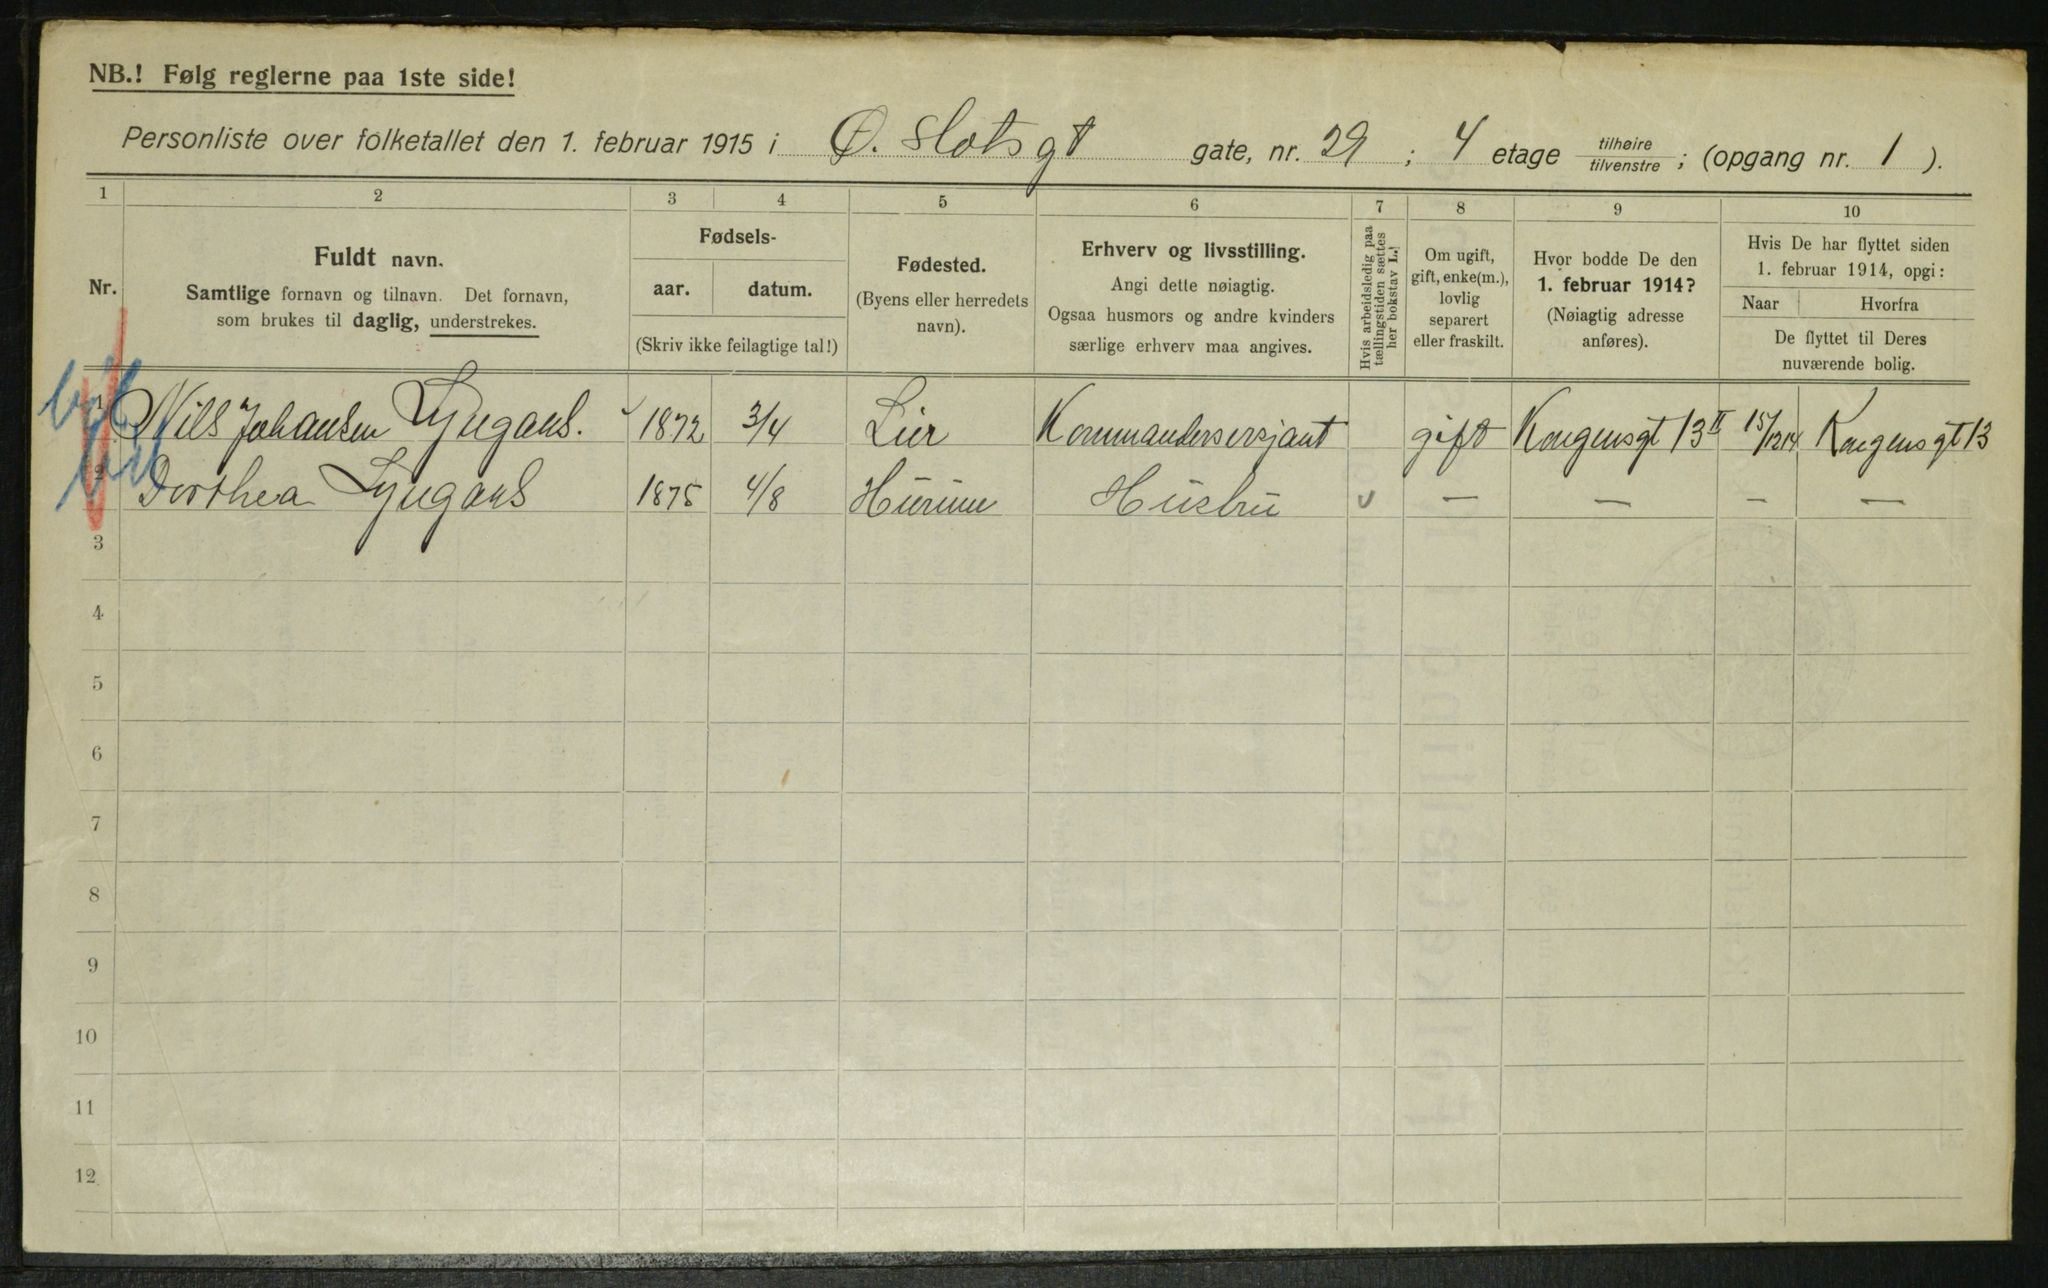 NB.! Følg reglerne paa 1ste side!
Personliste over folketallet den 1. februar 1915 i Ø. Slotsgt gate, nr. 29 ; 4 etage tilhøire / tilvenstre ; (opgang nr. 1 ).
1 2 3 4 5 6 7 8 9 10
Nr.
Fuldt navn.
Samtlige fornavn og tilnavn. Det fornavn,
som brukes til daglig, understrekes.
Fødsels-
aar. datum.
(Skriv ikke feilagtige tal!)
Fødested.
(Byens eller herredets
navn).
Erhverv og livsstilling.
Angi dette nøiagtig.
Ogsaa husmors og andre kvinders
særlige erhverv maa angives.
Hvis arbeidsledig paa
tællingstiden sættes
her bokstav L.!
Om ugift,
gift, enke(m.),
lovlig
separert
eller fraskilt.
Hvor bodde De den
1. februar 1914?
(Nøiagtig adresse
anføres).
Hvis De har flyttet siden
1. februar 1914, opgi:
Naar Hvorfra
De flyttet til Deres
nuværende bolig.
1 Nils Johansen Lyngaas. 1872 3/4 Lier Kommandersersjant gift Kongensgt 13 II 15/12 14 Kongensgt 13
2 Dorthea Lyngaas 1875 4/8 Hurum Hustru — — — —
3
4
5
6
7
8
9
10
11
12